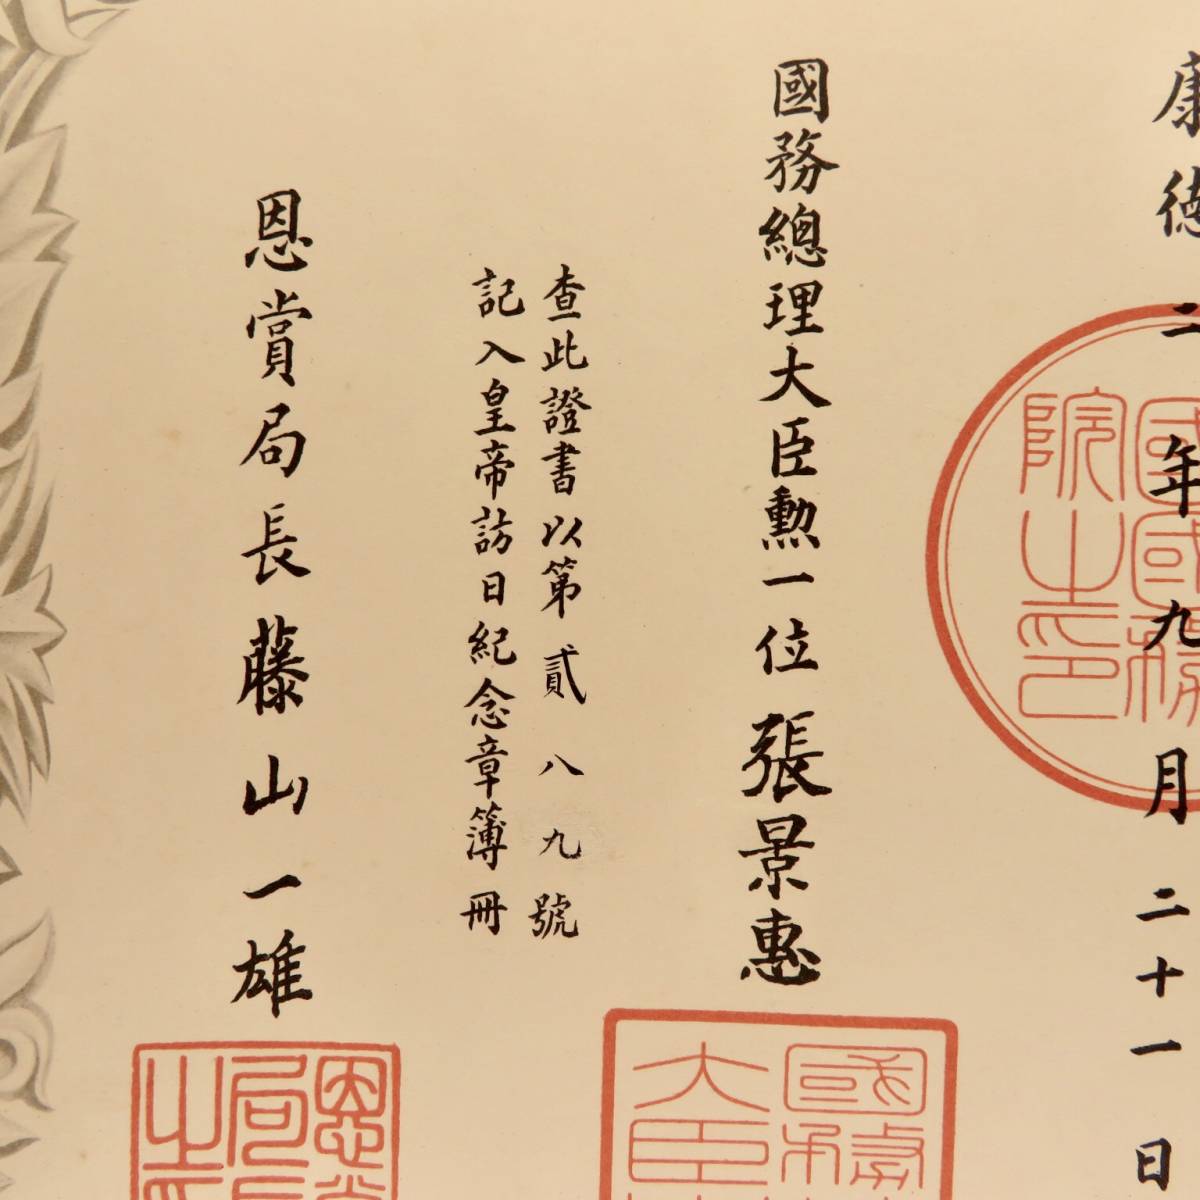 康德二年九月二十一日
國國務
院之印
國務總理大臣勲一位張景惠
國務
大臣
查此證書以第貳八九號
記入皇帝訪日紀念章簿冊
恩賞局長藤山一雄
恩賞
局長
之印